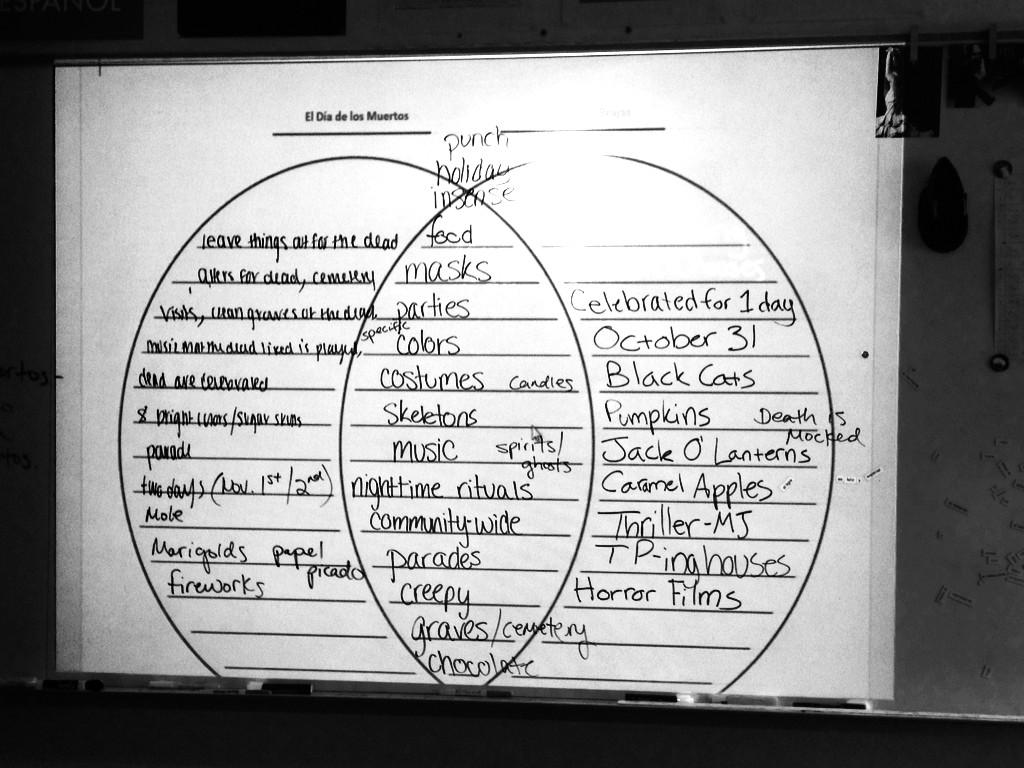 ESPAÑOL
El Día de los Muertos
punch
holiday
insense
leave things out for the dead
alters for dead, cemetery
visits, clean graves of the dead,
music that the dead liked is played,
dead are celebrated
& bright colors/sugar skulls
parade
two days (Nov. 1st/2nd)
Mole
Marigolds papel
picado
fireworks
food
masks
parties
specific
colors
costumes candles
Skeletons
music spirits/
ghosts
nighttime rituals
community-wide
parades
creepy
graves/cemetery
chocolate
Celebrated for 1 day
October 31
Black Cats
Pumpkins Death is
Mocked
Jack O'Lanterns
Caramel Apples
Thriller-MJ
TP-ing houses
Horror Films